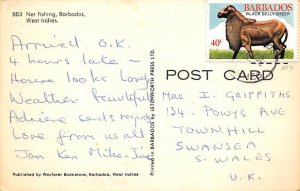 BB3 Net fishing, Barbados,
West Indies.
Arrived O.K.
4 hours late -
House looks lovely
Weather beautiful
Adriene sends regards
Love from us all
Jan Ken Mike
Published by Wayfarer Bookstore, Barbados, West Indies
Printed in BARBADOS by LETCHWORTH PRESS LTD.
BARBADOS
BLACK BELLY SHEEP
40¢
POST CARD
MRS. I. GRIFFITHS
134, POWYS AVE
TOWNHILL
SWANSEA
S. WALES
U.K.